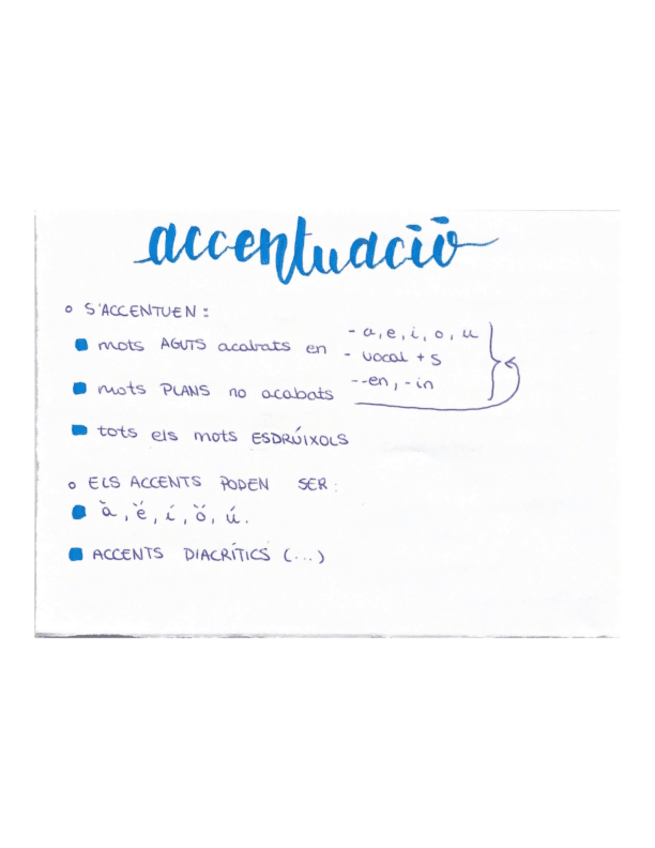 accentuació
S'ACCENTUEN:
mots AGUTS acabats en
- a, e, i, o, u
- vocal + s
- -en, -in
mots PLANS no acabats
tots els mots ESDRÚIXOLS
ELS ACCENTS PODEN SER:
à, è́, í, ò́, ú.
ACCENTS DIACRÍTICS (...)